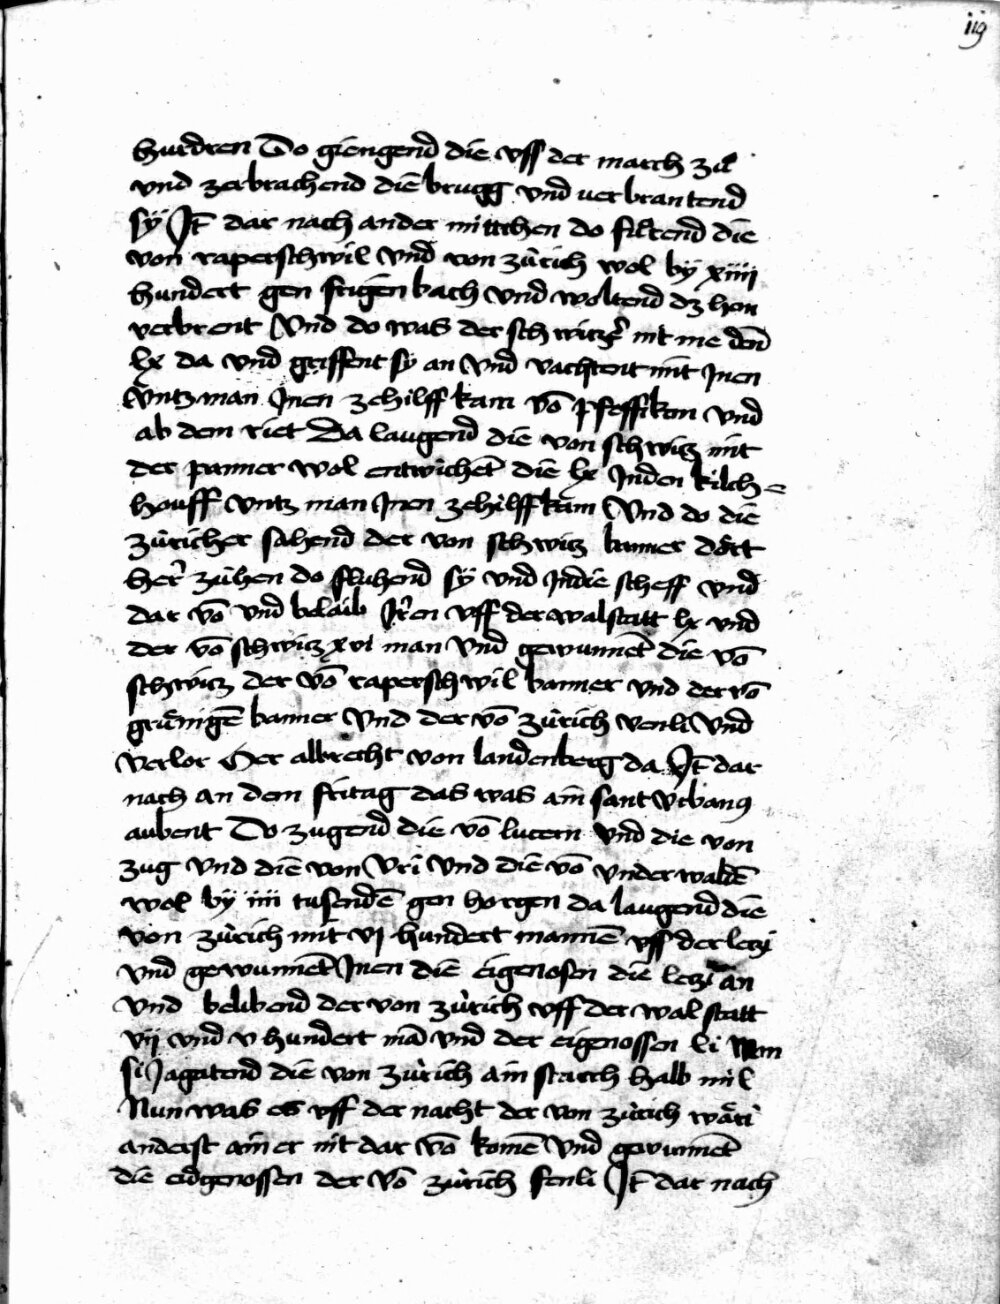 119
hurdren Do giengend die vff der march zů
vnd zerbrachend die brugg vnd verbrantend
sÿ It̄ dar nach an der mittchen do fůrend die
von raperschwil vnd von zürich wol bÿ xiiii
hundert gen frigenbach vnd woltend dz hon
verbrent Vnd do was der schwitzer̄ nit me deñ
lx da vnd griffent sÿ an vnd vachtent mit Jnen
Vntz man Jnen ze hilff kam vō pfeffikon vnd
ab dem riet Da laugend die von schwitz mit
der panner wol entwichet̄ die lx Jnden kilch=
houff vntz man Jnen ze hilff kam Vnd do die
züricher sahend der von schwitz banner dört
her̄ zühen do fluhend sÿ vnd Jndie scheff vnd
dar vō vnd belaib Jren vff der walstatt lx vnd
der vō schwitz xvi man vnd gewunnet̄ die vō
schwitz der vō raperschwil banner vnd der vō
grünigē banner vnd der vō zürich venli vnd
verlor Her albrecht von landenberg da It̄ dar
nach an dem fritag das was am sant vrbanus
aubent Do zugend die vō lucern vnd die von
zug vnd die von vri vnd die vō vnderwaldē
wol bÿ iiii tusendē gen horgen da laugend die
von zürich mit vi hundert mannē vff der letzi
vnd gewunnet̄ Jnen die eigenosen die letzi an
vnd belibend der von zürich vff der walstatt
vii vnd v hundert mā vnd der eigenossen li
si Jagatend die von zürich ain starch halb mil
Nun was es vff der nacht der von zürich wäri
anderst ainer nit dar vō komē vnd gewunnet̄
die eidgenossen der vō zürich fenli It̄ dar nach